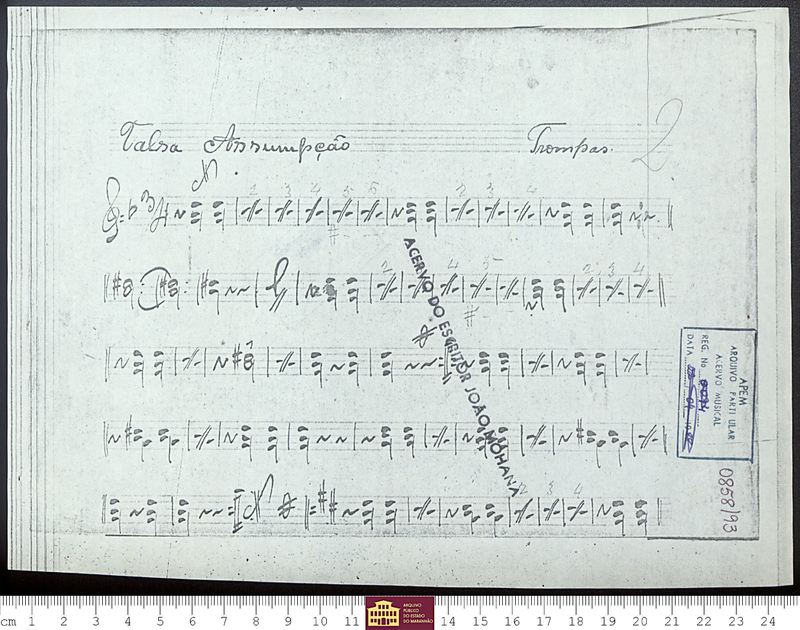 Valsa Assumpção Trompas. 2
2 3 4 5 6 2 3 4
2 4 5 2 3 4
2 3 4
ACERVO DO ESCRITOR JOÃO MOHANA
APEM
ARQUIVO PARTI ULAR
ACERVO MUSICAL
REG. No
DATA
0858/93
cm 1 2 3 4 5 6 7 8 9 10 11 12 14 15 16 17 18 19 20 21 22 23 24
ARQUIVO
PÚBLICO
DO ESTADO
DO MARANHÃO